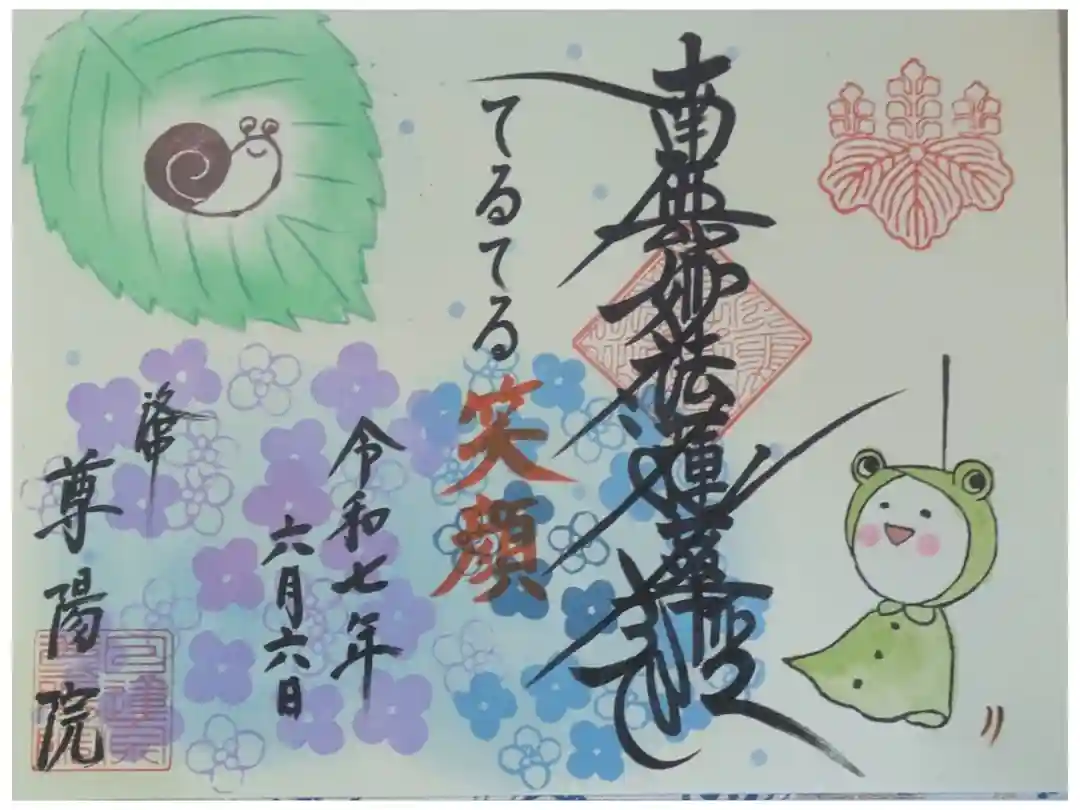 南無妙法蓮華経
てるてる笑顔
令和七年
六月六日
尊陽院